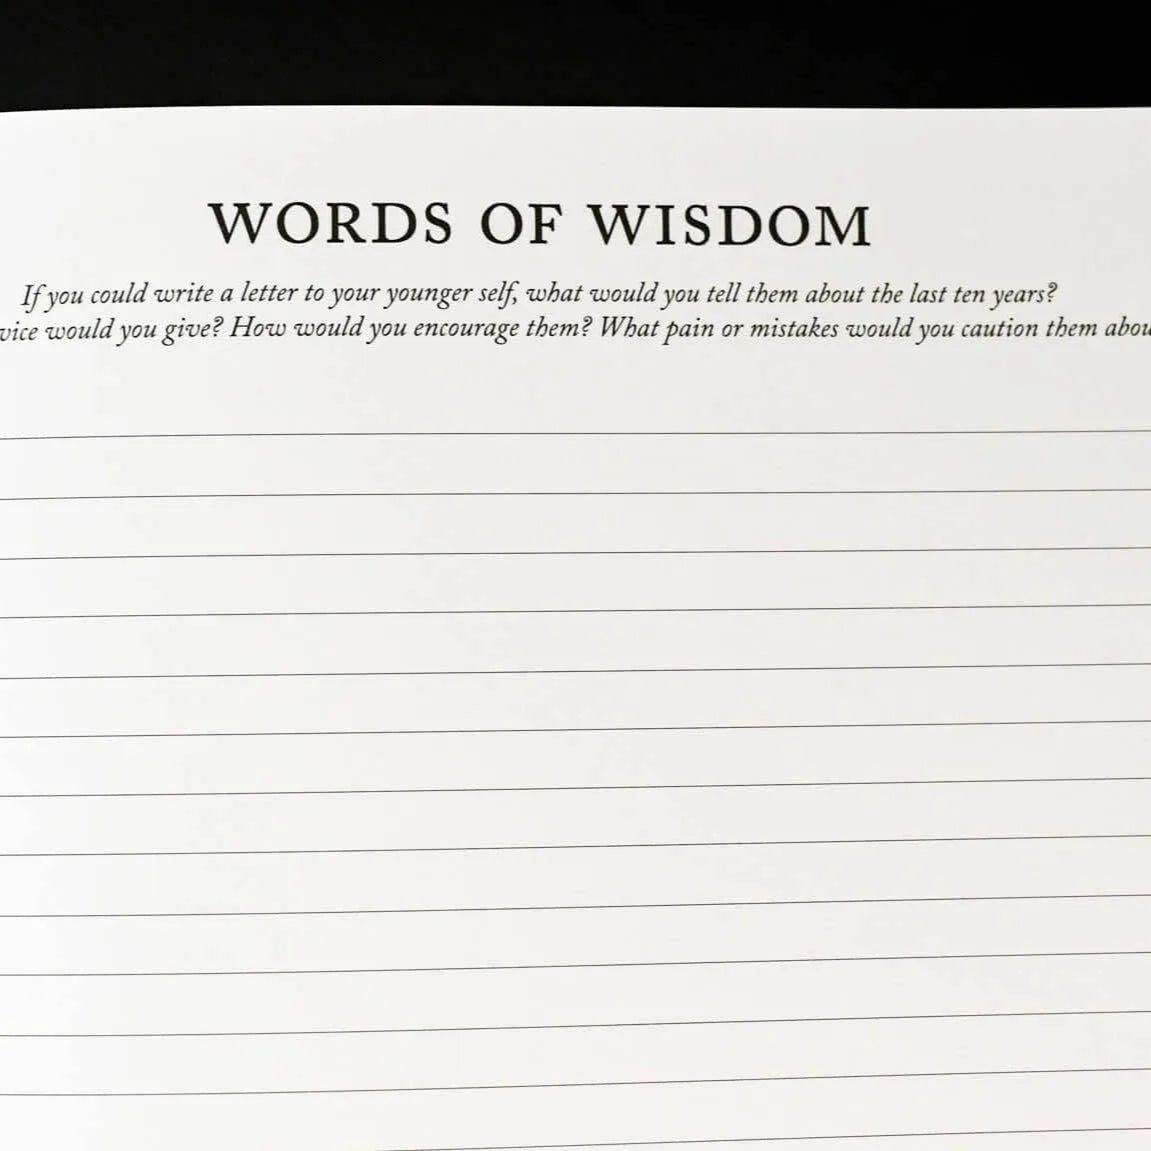 WORDS OF WISDOM
If you could write a letter to your younger self, what would you tell them about the last ten years?
would you give? How would you encourage them? What pain or mistakes would you caution them